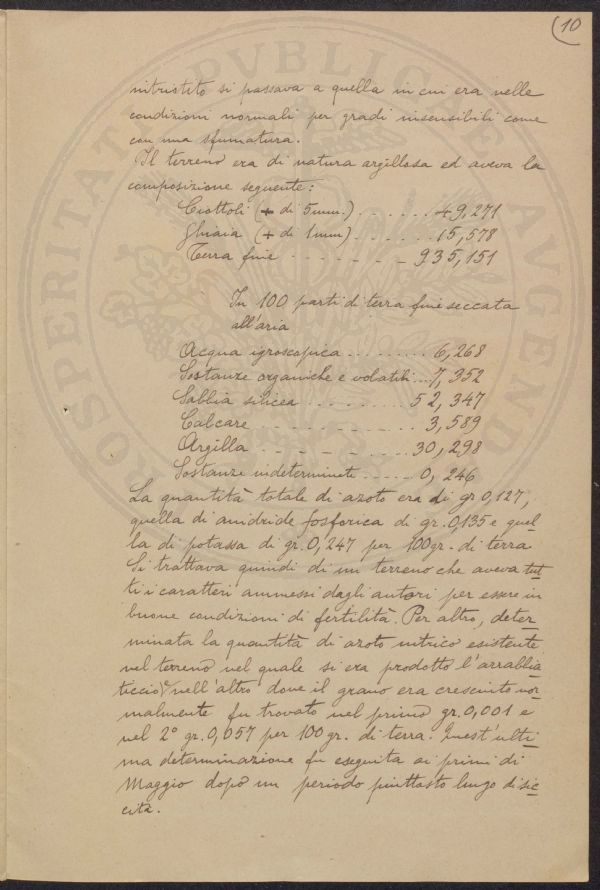 10
intristito si passava a quella in cui era nelle
condizioni normali per gradi insensibili come
con una sfumatura.
Il terreno era di natura argillosa ed aveva la
composizione seguente:
Ciottoli (+ di 5mm.) . . . . . . 49,271
Ghiaia (+ di 1mm) . . . . . . 15,578
Terra fine - - - - - - - 935,151
In 100 parti di terra fine seccata
all'aria
Acqua igroscopica . . . . . . . . 6,268
Sostanze organiche e volatili ... 7,352
Sabbia silicea . . . . . . . . . 52,347
Calcare . . . . . . . . . . . . 3,589
Argilla . . . . . . . . . . . 30,298
Sostanze indeterminate . . . . . 0,246
La quantità totale di azoto era di gr 0,127,
quella di anidride fosforica di gr. 0,135 e quel
la di potassa di gr. 0,247 per 100 gr. di terra
Si trattava quindi di un terreno che aveva tut
ti i caratteri ammessi dagli autori per essere in
buone condizioni di fertilità. Per altro, deter
minata la quantità di azoto nitrico esistente
nel terreno nel quale si era prodotto l'arrabbia
ticcio nell'altro dove il grano era cresciuto nor
malmente fu trovato nel primo gr. 0,001 e
nel 2° gr. 0,057 per 100 gr. di terra. Quest'ulti
ma determinazione fu eseguita ai primi di
Maggio dopo un periodo piuttosto lungo di sic
cità.
PROSPERITATI PVBLICAE AVGENDAE